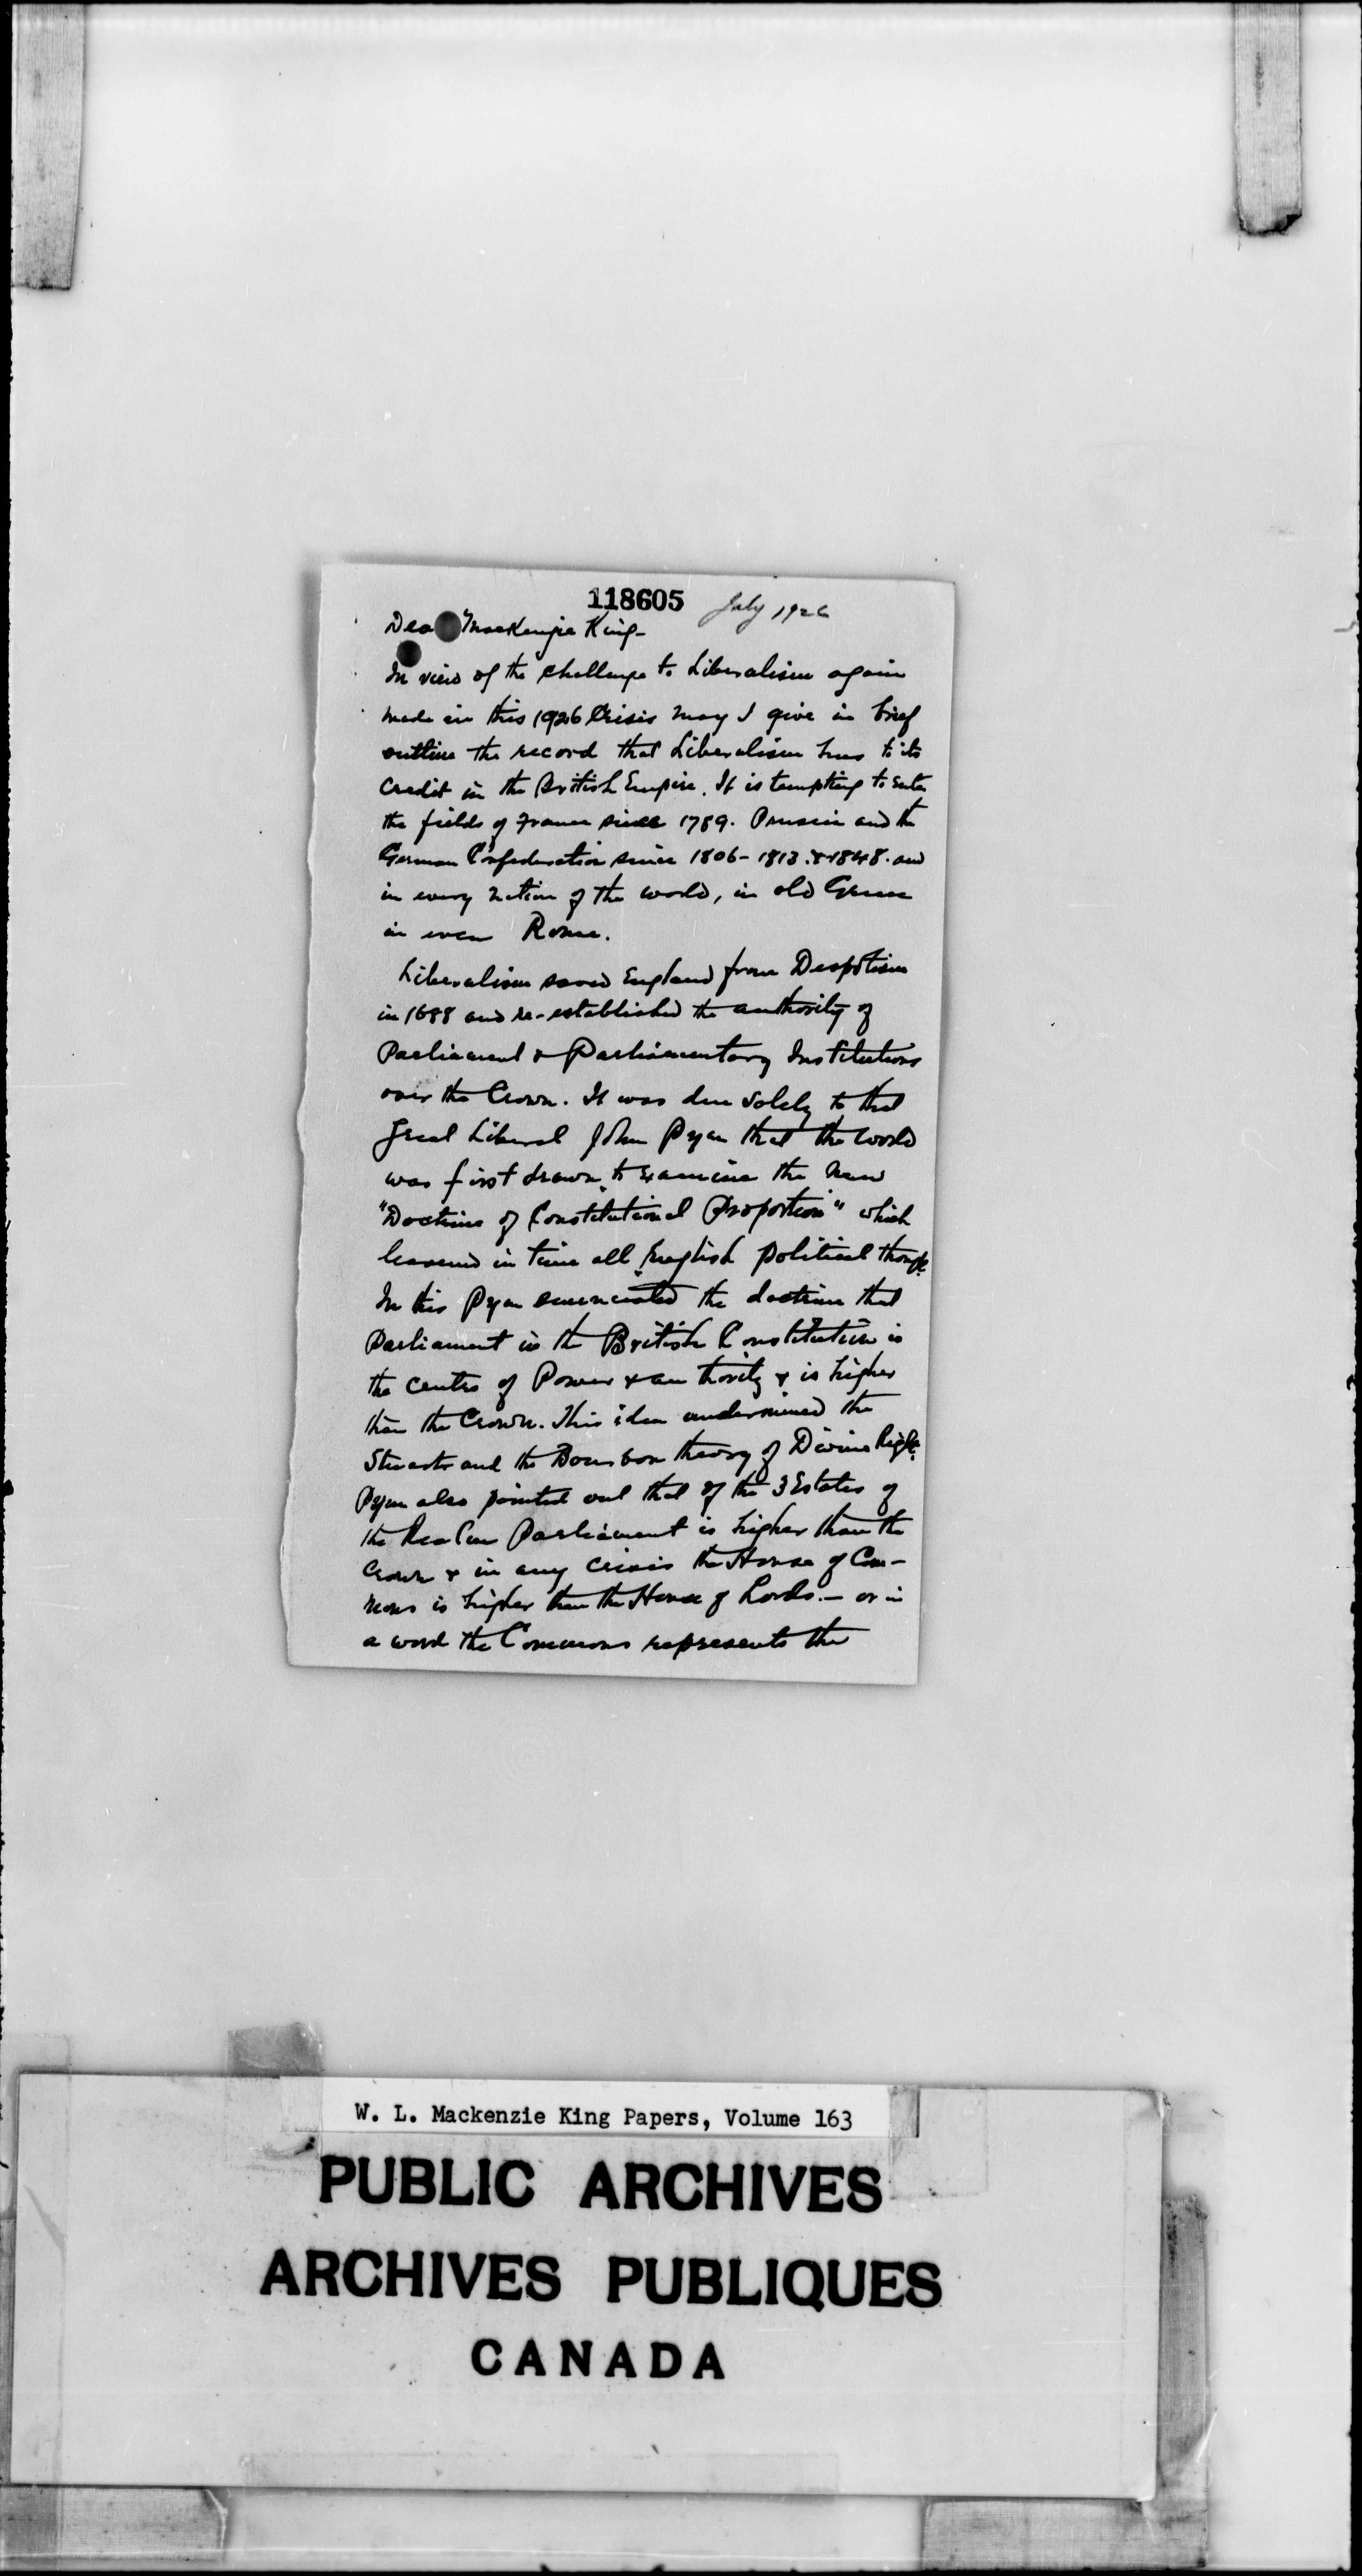 118605 July 1926
Dear Mackenzie King-
In view of the challenge to Liberalism again
made in this 1926 Crisis may I give in brief
outline the record that Liberalism has to its
credit in the British Empire. It is tempting to enter
the fields of France since 1789. Prussia and the
German Confederation since 1806-1813 & 1848. and
in every nation of the world, in old Greece
in even Rome.
Liberalism saved England from Despotism
in 1688 and re-established the authority of
Parliament & Parliamentary Institutions
over the Crown. It was due solely to that
great Liberal John Pym that the world
was first drawn to examine the new
"Doctrine of Constitutional Proportion" which
leavened in time all English political thought.
In this Pym enunciated the doctrine that
Parliament in the British Constitution is
the centre of Power & authority & is higher
than the Crown. This idea undermined the
Stuarts and the Bourbon theory of Divine Right.
Pym also pointed out that of the 3 Estates of
the Realm Parliament is higher than the
Crown & in any crisis the House of Com-
mons is higher than the House of Lords. - or in
a word the Commons represents the
W. L. Mackenzie King Papers, Volume 163
PUBLIC ARCHIVES
ARCHIVES PUBLIQUES
CANADA